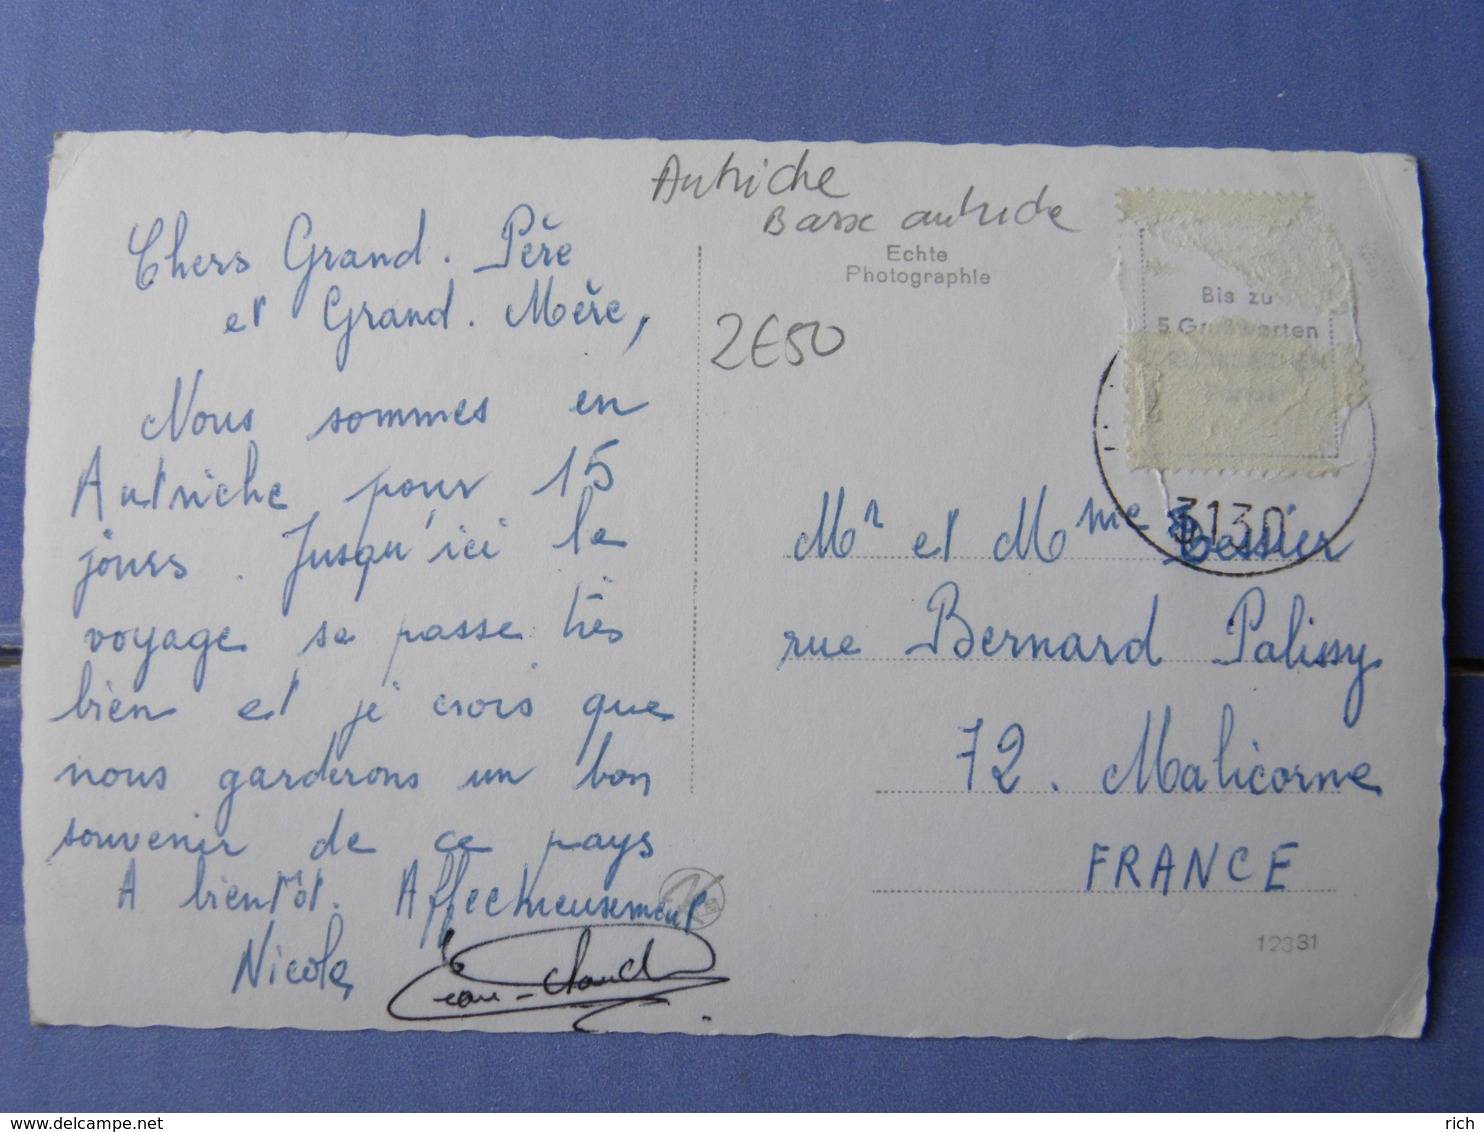 Autriche
Basse autriche
Echte
Photographie
2€50
Chers Grand. Père
et Grand. Mère,
Nous sommes en
Autriche pour 15
jours. Jusqu'ici le
voyage se passe très
bien et je crois que
nous garderons un bon
souvenir de ce pays
A bientôt. Affectueusement
Nicole,
Jean-Claude
Bis zu
5 Grußworten
3130
Mr et Mme Tessier
rue Bernard Palissy
72. Malicorne
FRANCE
12331
delcampe.net
rich